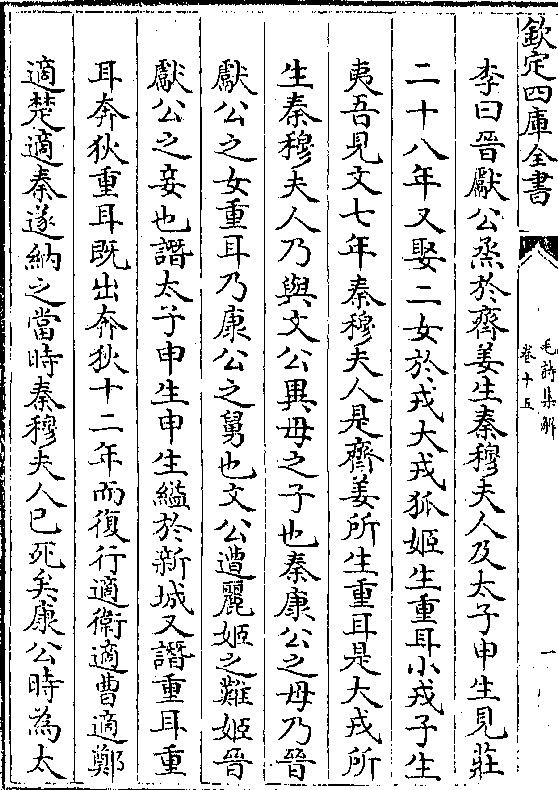 欽定四庫全書
毛詩集解
卷十五
一
李曰晉獻公烝於齊姜生秦穆夫人及太子申生見莊
二十八年又娶二女於戎大戎狐姬生重耳小戎子生
夷吾見文七年秦穆夫人是齊姜所生重耳是大戎所
生秦穆夫人乃與文公異母之子也秦康公之母乃晉
獻公之女重耳乃康公之舅也文公遭麗姬之難姬晉
獻公之妾也譖太子申生申生縊於新城又譖重耳重
耳奔狄重耳既出奔狄十二年而復行適衛適曹適鄭
適楚適秦遂納之當時秦穆夫人已死矣康公時為太